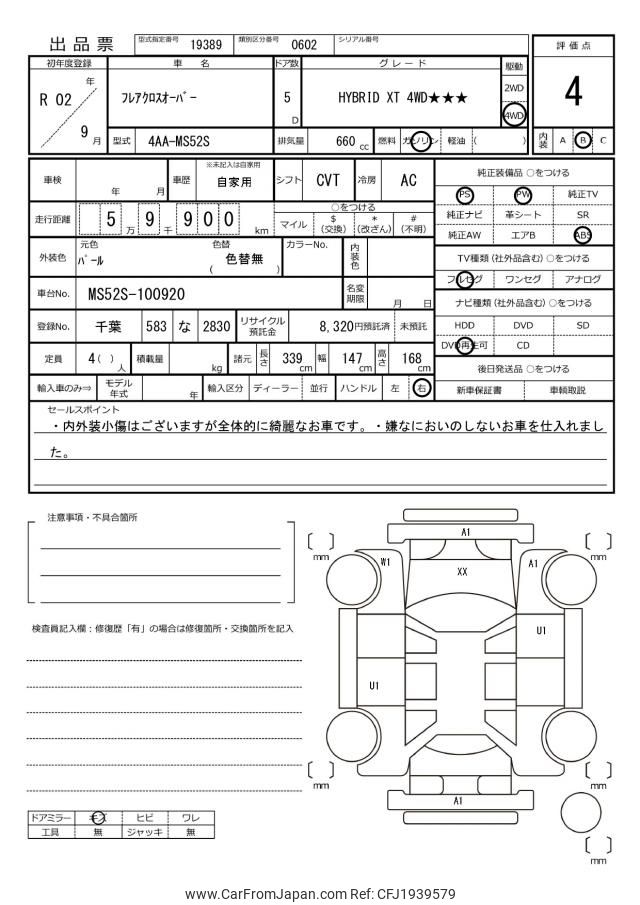 出品票 型式指定番号 19389 類別区分番号 0602 シリアル番号
評価点
4
内装 A B C
初年度登録 車 名 ドア数 グレード 駆動
R 02 年 9 月
フレアクロスオーバー 5 D HYBRID XT 4WD★★★ 2WD 4WD
型式 4AA-MS52S 排気量 660 cc 燃料 ガソリン 軽油 ( )
車検 年 月 車歴 ※未記入は自家用 自家用 シフト CVT 冷房 AC
走行距離 5 万 9 千 9 0 0 km
○をつける
マイル $(交換) *(改ざん) #(不明)
外装色 元色 パール 色替 ( 色替無 ) カラーNo. 内装色
車台No. MS52S-100920 名変期限 月 日
登録No. 千葉 583 な 2830 リサイクル預託金 8,320円預託済 未預託
定員 4( )人 積載量 kg 諸元 長さ 339 cm 幅 147 cm 高さ 168 cm
輸入車のみ⇒ モデル年式 年 輸入区分 ディーラー 並行 ハンドル 左 右
純正装備品 ○をつける
PS PW 純正TV
純正ナビ 革シート SR
純正AW エアB ABS
TV種類(社外品含む) ○をつける
フルセグ ワンセグ アナログ
ナビ種類(社外品含む) ○をつける
HDD DVD SD
DVD再生可 CD
後日発送品 ○をつける
新車保証書 車輌取説
セールスポイント
・内外装小傷はございますが全体的に綺麗なお車です。・嫌なにおいのしないお車を仕入れまし
た。
注意事項・不具合箇所
検査員記入欄：修復歴「有」の場合は修復箇所・交換箇所を記入
A1
mm
mm
W1
A1
XX
U1
U1
mm
mm
A1
mm
ドアミラー キズ ヒビ ワレ
工具 無 ジャッキ 無
www.CarFromJapan.com Ref: CFJ1939579